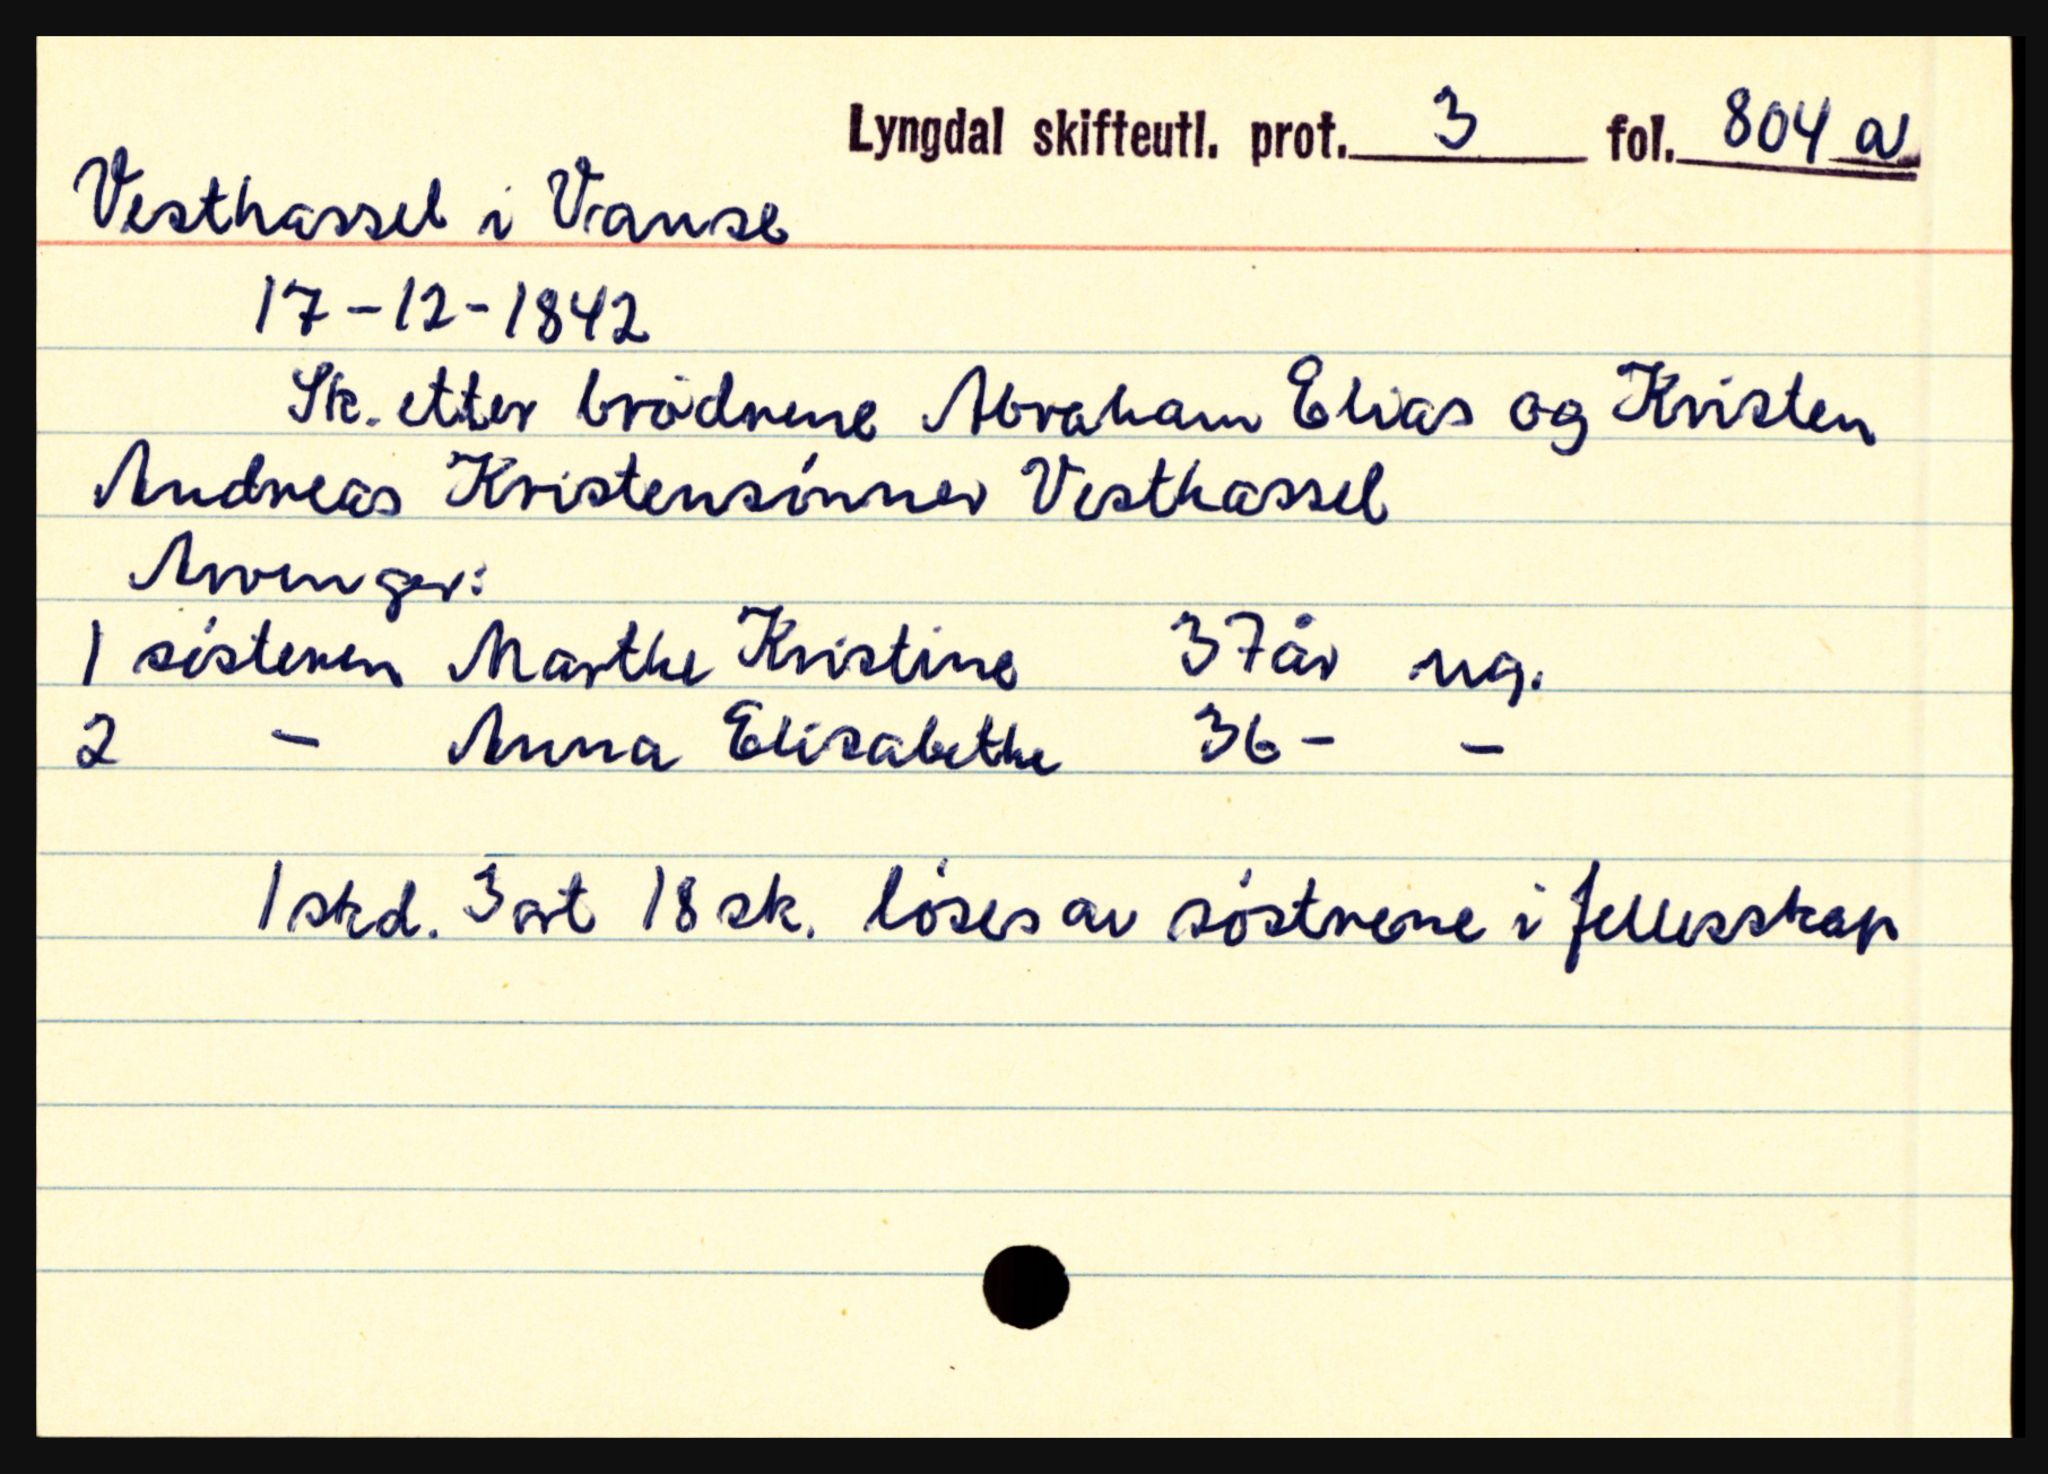 Lyngdal skifteutl. prot. 3 fol. 804 a
Vesthassel i Vanse
17-12-1842
Sk. etter brødrene Abraham Elias og Kristen
Andreas Kristensønner Vesthassel
Arvinger:
1 søsteren Marthe Kristine 37 år ug.
2 - Anna Elisabethe 36 - -
1 skd. 3 ort 18 sk. løses av søstrene i fellesskap